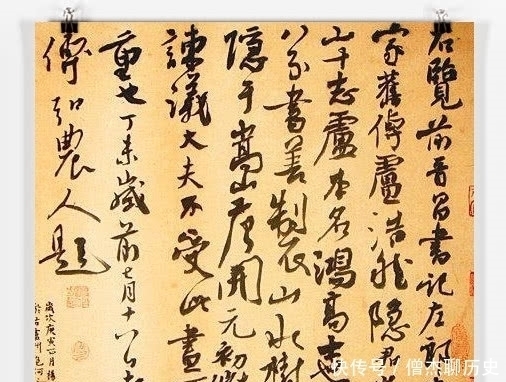 右覽前晉昌書記左郎
家舊傳盧浩然隱君
山十志盧本名鴻高士
八分書善製山水樹
隱于嵩山唐開元初
諫議大夫不受此畫
重也丁未歲前七月十八日
傅弘農人題
歲次庚寅
於古廬州包河
快传号 / 僧杰聊历史